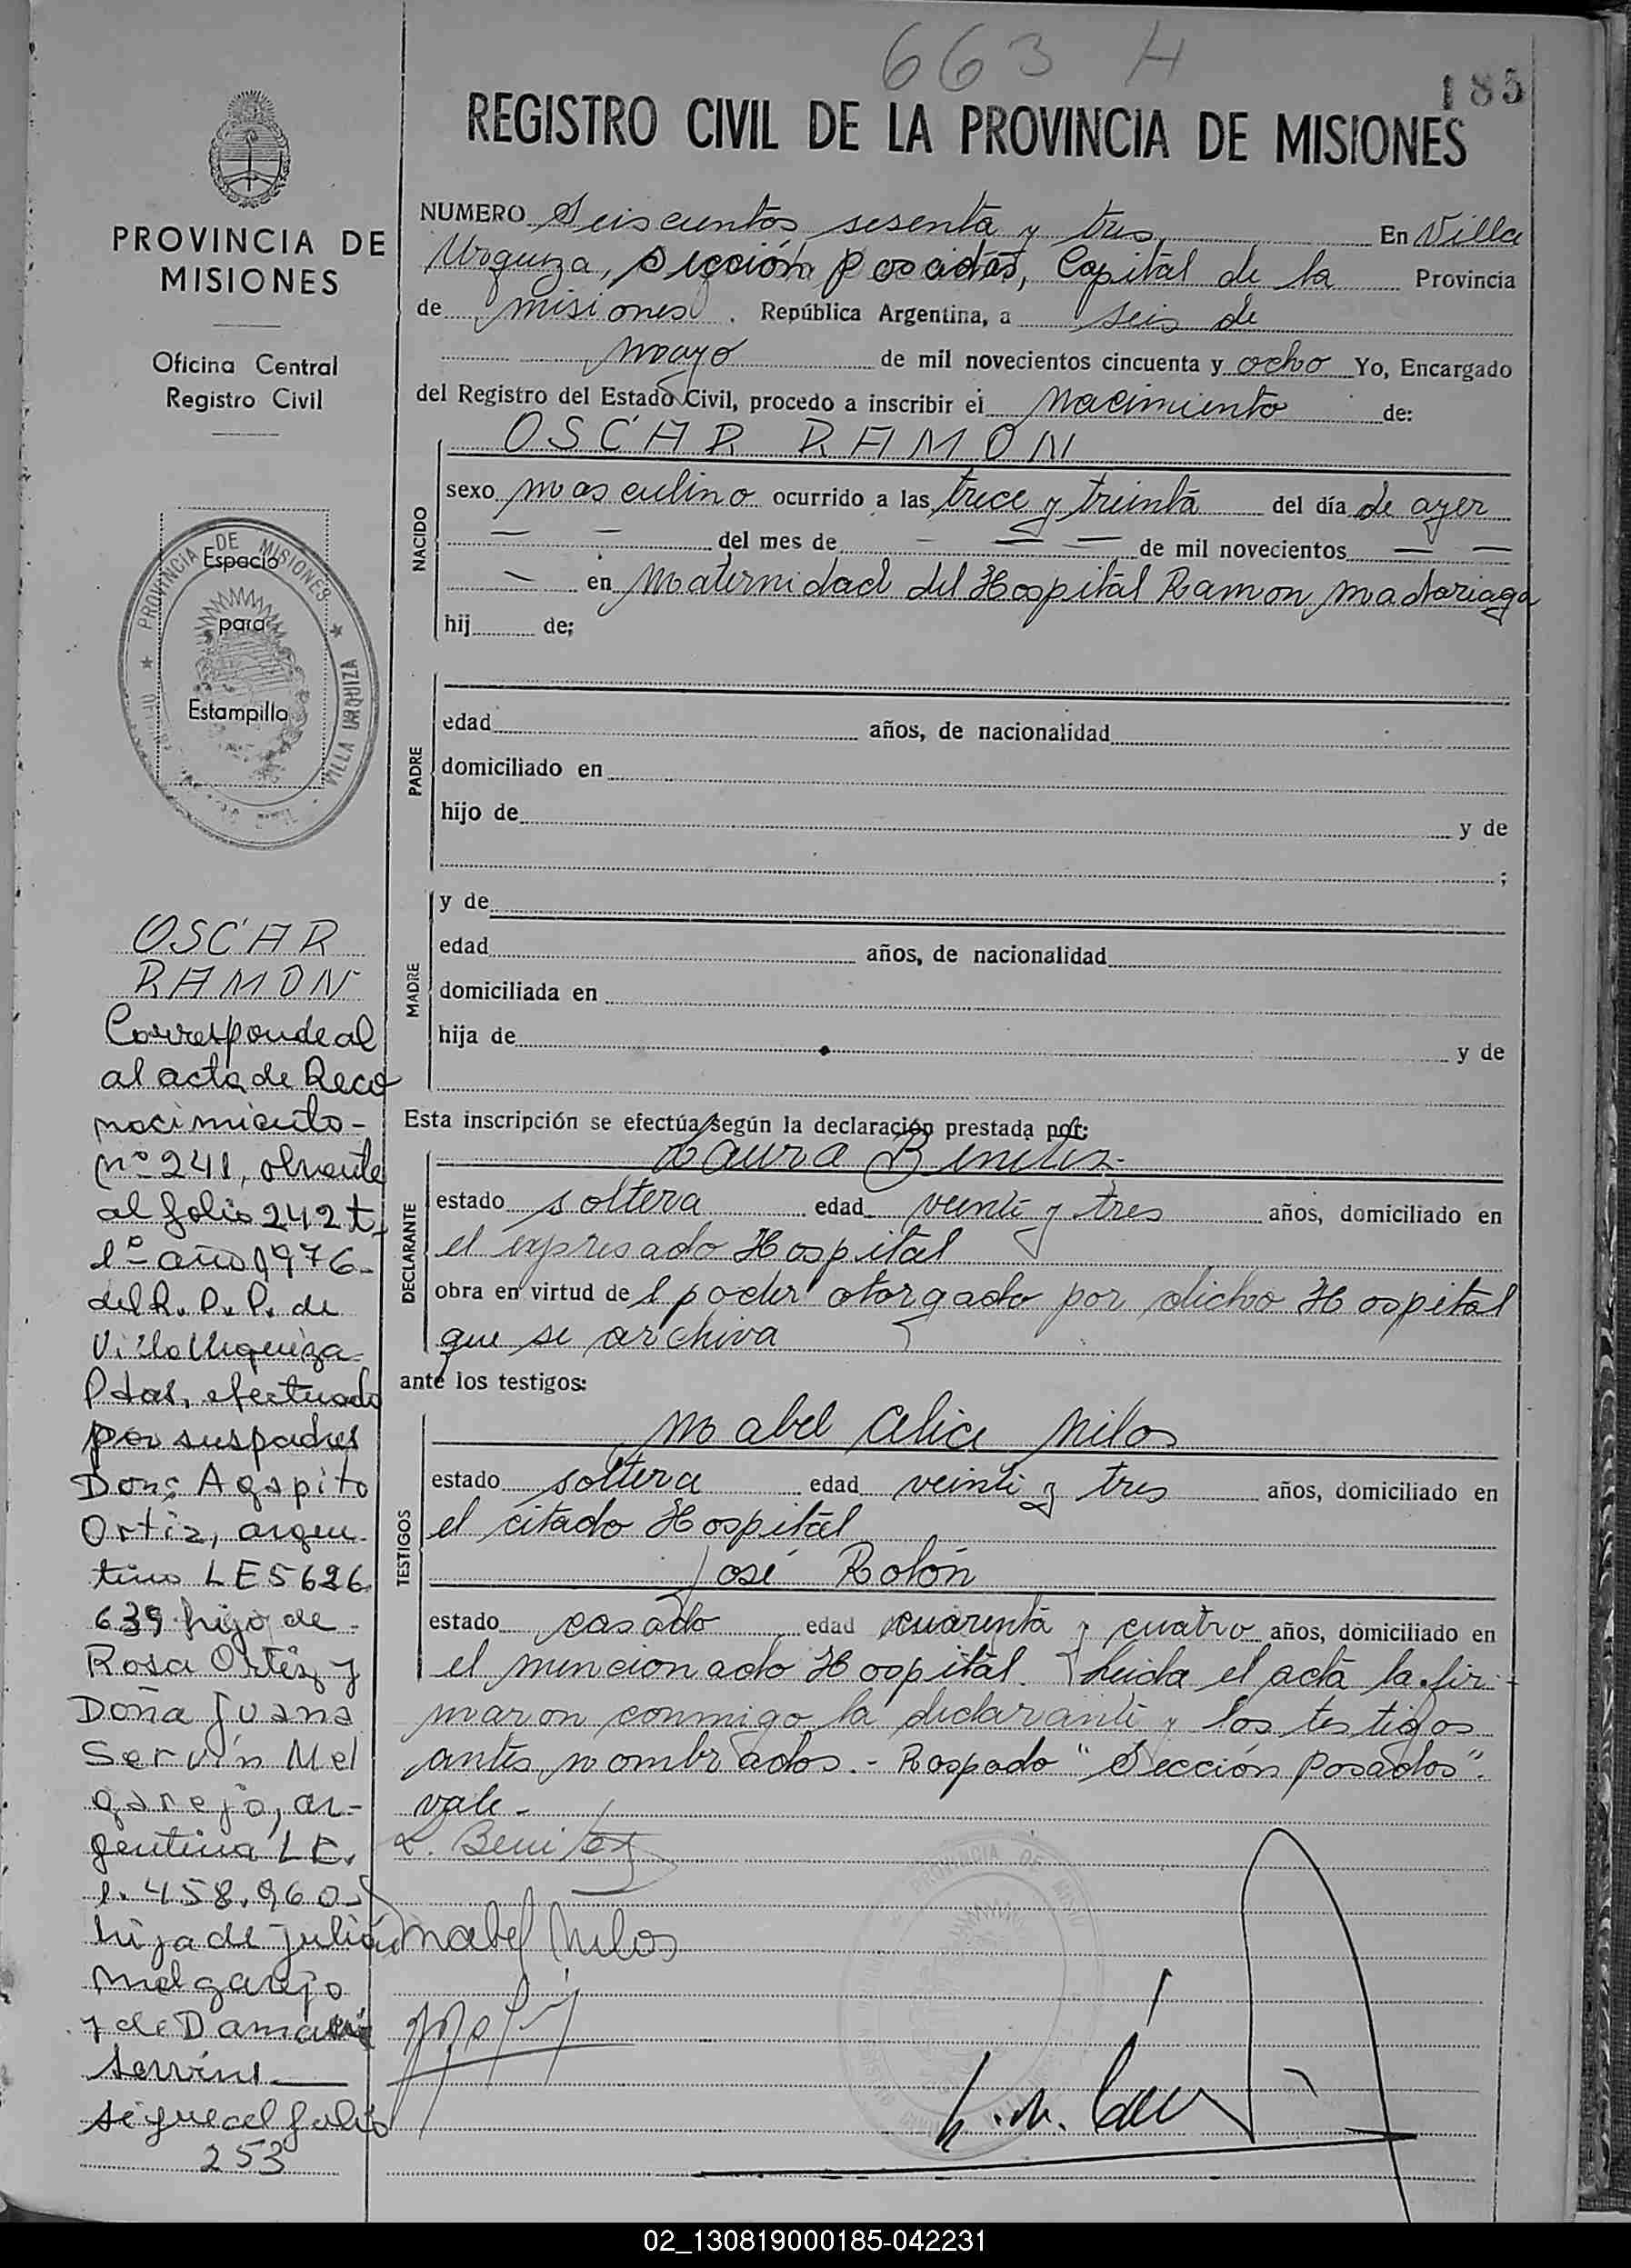 663 H
185
REGISTRO CIVIL DE LA PROVINCIA DE MISIONES
PROVINCIA DE
MISIONES
Oficina Central
Registro Civil
PROVINCIA DE MISIONES
VILLA URQUIZA
Espacio
para
Estampilla
NUMERO Seiscientos sesenta y tres, En Villa
Urquiza, Sección Posadas, Capital de la Provincia
de misiones. República Argentina, a seis de
mayo de mil novecientos cincuenta y ocho Yo, Encargado
del Registro del Estado Civil, procedo a inscribir el Nacimiento de:
OSCAR RAMON
NACIDO
sexo masculino ocurrido a las trece y treinta del día de ayer
— — del mes de — — — de mil novecientos — —
— en Maternidad del Hospital Ramon Madariaga
hij de;
PADRE
edad años, de nacionalidad
domiciliado en
hijo de y de
;
MADRE
y de
edad años, de nacionalidad
domiciliada en
hija de y de
Esta inscripción se efectúa según la declaración prestada por:
DECLARANTE
Laura Benites.
estado soltera edad veinti y tres años, domiciliado en
el expresado Hospital
obra en virtud del poder otorgado por dicho Hospital
que se archiva
ante los testigos:
TESTIGOS
Mabel Celia Milos
estado soltera edad veinti y tres años, domiciliado en
el citado Hospital
José Rolón
estado casado edad cuarenta y cuatro años, domiciliado en
el mencionado Hospital. Leida el acta la fir-
maron conmigo la declarante y los testigos
antes nombrados.- Raspado "Sección Posadas".
vale-
L. Benitez
Mabel Milos
OSCAR
RAMON
Corresponde al
al acta de Reco
nocimiento-
nº 241, obrante
al folio 242 t-
1º- año 1976-
del R. P. P. de
Villa Urquiza
Pdas, efectuado
por sus padres
Don: Agapito
Ortiz, argen-
tino LE 5626
639 hijo de
Rosa Ortiz y
Doña Juana
Servín Mel
garejo, ar-
gentina LC.
1.458.960-
hija de Julián
Melgarejo
y de
Servín
Sigue al folio
253
02_130819000185-042231